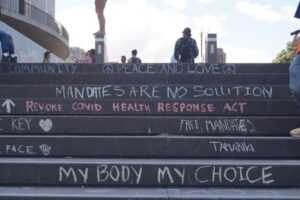 COMMUNITY ON PEACE AND LOVE ON
MANDATES ARE NO SOLUTION
↑ REVOKE COVID HEALTH RESPONSE ACT
KEY FREE MANDATES
FACE TAMAKI
MY BODY MY CHOICE